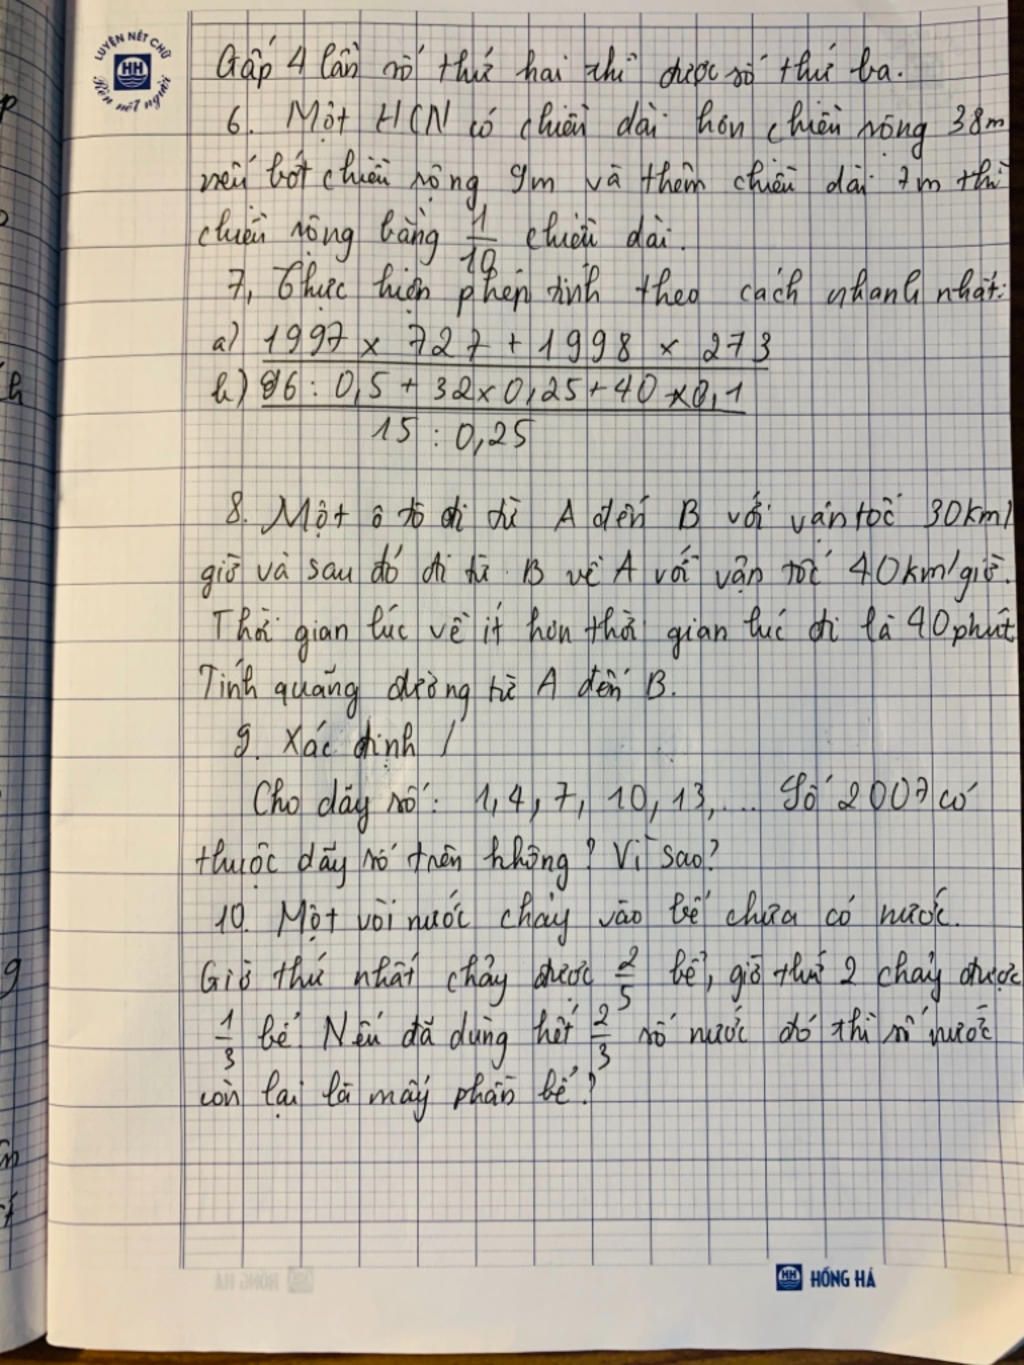 LUYỆN NÉT CHỮ
HH
Rèn nết người
Gấp 4 lần số thứ hai thì được số thứ ba.
6. Một HCN có chiều dài hơn chiều rộng 38m
nếu bớt chiều rộng 9m và thêm chiều dài 7m thì
chiều rộng bằng 1/10 chiều dài.
7, Thực hiện phép tính theo cách nhanh nhất:
a) 1997 x 727 + 1998 x 273
b) 96 : 0,5 + 32 x 0,25 + 40 x 0,1
15 : 0,25
8. Một ô tô đi từ A đến B với vận tốc 30km/
giờ và sau đó đi từ B về A với vận tốc 40km/giờ.
Thời gian lúc về ít hơn thời gian lúc đi là 40 phút
Tính quãng đường từ A đến B.
9. Xác định /
Cho dãy số: 1, 4, 7, 10, 13, ... Số 2007 có
thuộc dãy số trên không? Vì sao?
10. Một vòi nước chảy vào bể chưa có nước.
Giờ thứ nhất chảy được 2/5 bể, giờ thứ 2 chảy được
1/3 bể. Nếu đã dùng hết 2/3 số nước đó thì số nước
còn lại là mấy phần bể?
HH HỒNG HÀ